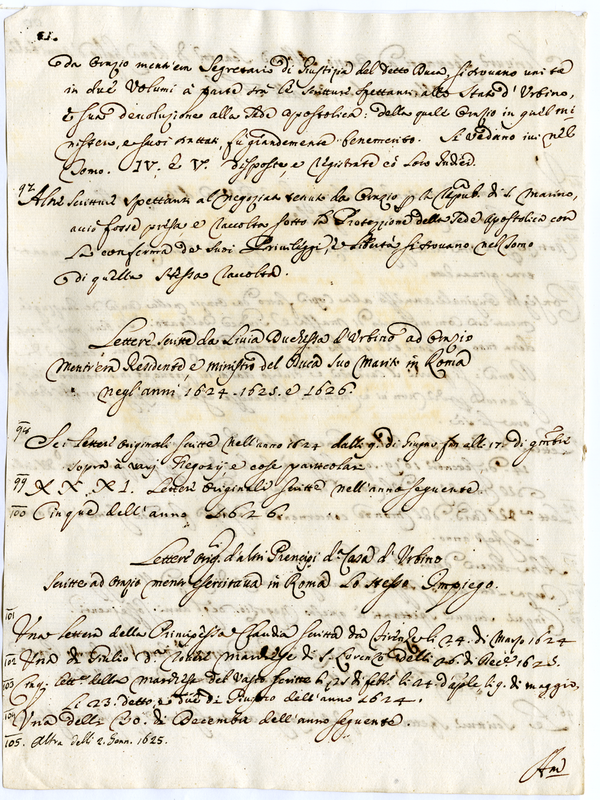 81.
da Orazio mentr'era Segretario di Giustizia del detto Duca, si trovano unite
in due Volumi a parte tra le Scritture spettanti allo Stato d'Urbino,
e sua devoluzione alla Sede Apostolica: della quale Orazio in quel mi-
nistero, e suoi trattati, fù grandemente benemerito. Si vedano ivi nel
Tomo. IV. e V. disposte, e registrate co' loro Indici.
97. Altre Scritture spettanti al Negoziato tenuto da Orazio p la Repub. di S. Marino,
acciò fosse presa e raccolta sotto la Protezzione della Sede Apostolica con
la conferma de' suoi Privileggi, e libertà si trovano nel Tomo
di quella stessa raccolta.
Lettere scritte da Livia Duchessa d'Urbino ad Orazio
mentr'era Residente, e ministro del Duca suo Marito in Roma
negl'anni 1624. 1625. e 1626.
98 Sei lettere originali scritte nell'anno 1624 dalli 9. di Giugno fin alli 17. di
sopra à varij Negozij e cose particolari
99 XXXXI. Lettere originali scritte nell'anno seguente.
100 Cinque dell'anno 1626.
Lettere orig. d'altri Principi d. Casa d'Urbino
scritte ad Orazio mentr'esercitava in Roma lo stesso Impiego.
101 Una lettera della Principessa Claudia scritta da Firenze li 24. di Marzo 1624
102 Una di Giulio della Marchese di S. Lorenzo delli 26. di 1623.
103 lett. della Marchese del Vasto scritte li 25 di febr. li 24 d'aple, li 9. di maggio,
li 23. detto, e due di dell'anno 1624.
104 Una delli 30. di Decembre dell'anno seguente.
105. Altra delli 2. Genn. 1625.